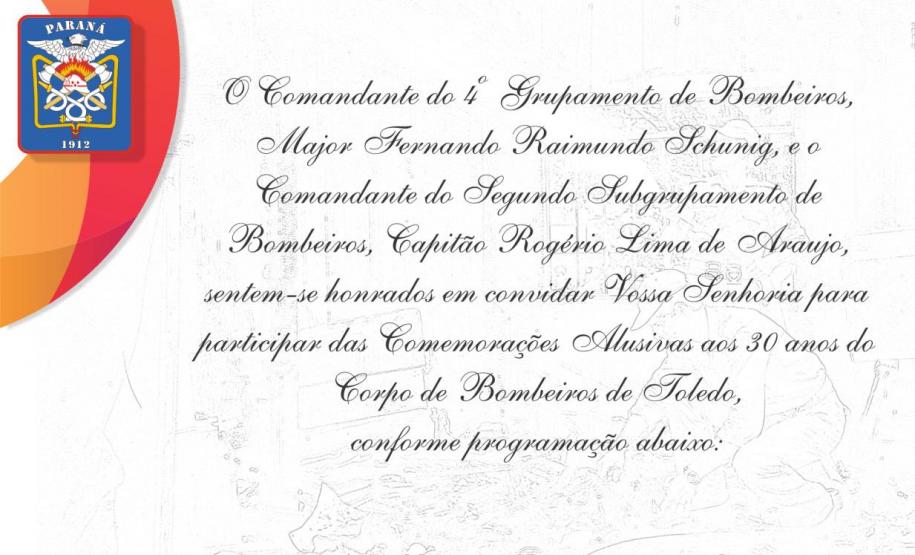 PARANÁ
1912
O Comandante do 4º Grupamento de Bombeiros,
Major Fernando Raimundo Schunig, e o
Comandante do Segundo Subgrupamento de
Bombeiros, Capitão Rogério Lima de Araujo,
sentem-se honrados em convidar Vossa Senhoria para
participar das Comemorações Alusivas aos 30 anos do
Corpo de Bombeiros de Toledo,
conforme programação abaixo: